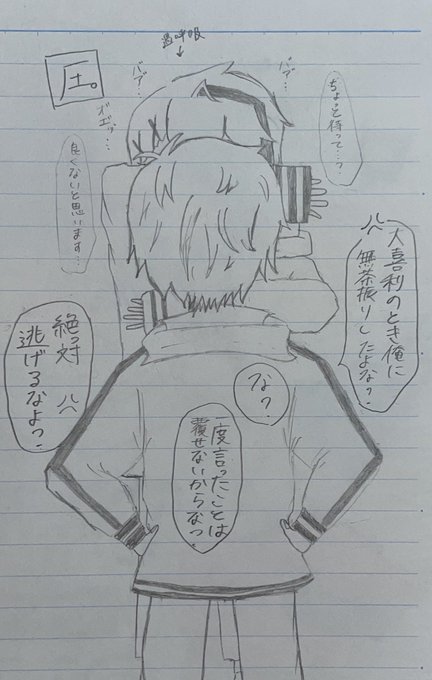 圧。
過呼吸
ちょっと待って…?
良くないと思います…
大喜利のとき俺に
無茶振りしたよな?
な?
一度言ったことは
覆せないからなっ
絶対
逃げるなよっ